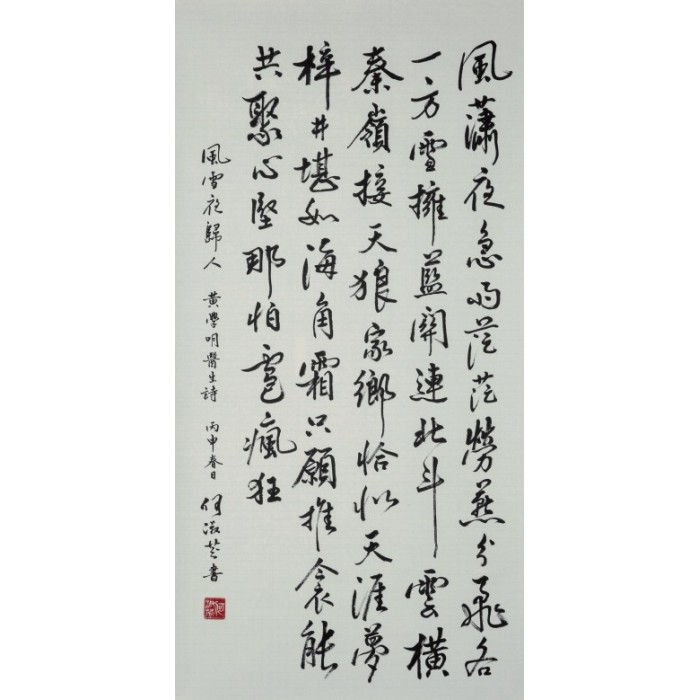 風瀟夜急雨茫茫勞燕分飛各
一方雪擁藍關連北斗雲橫
秦嶺接天狼家鄉恰似天涯夢
梓井堪如海角霜只願推衾能
共聚心堅那怕雹瘋狂
風雪夜歸人 黃學明醫生詩 丙申春日 何淑書